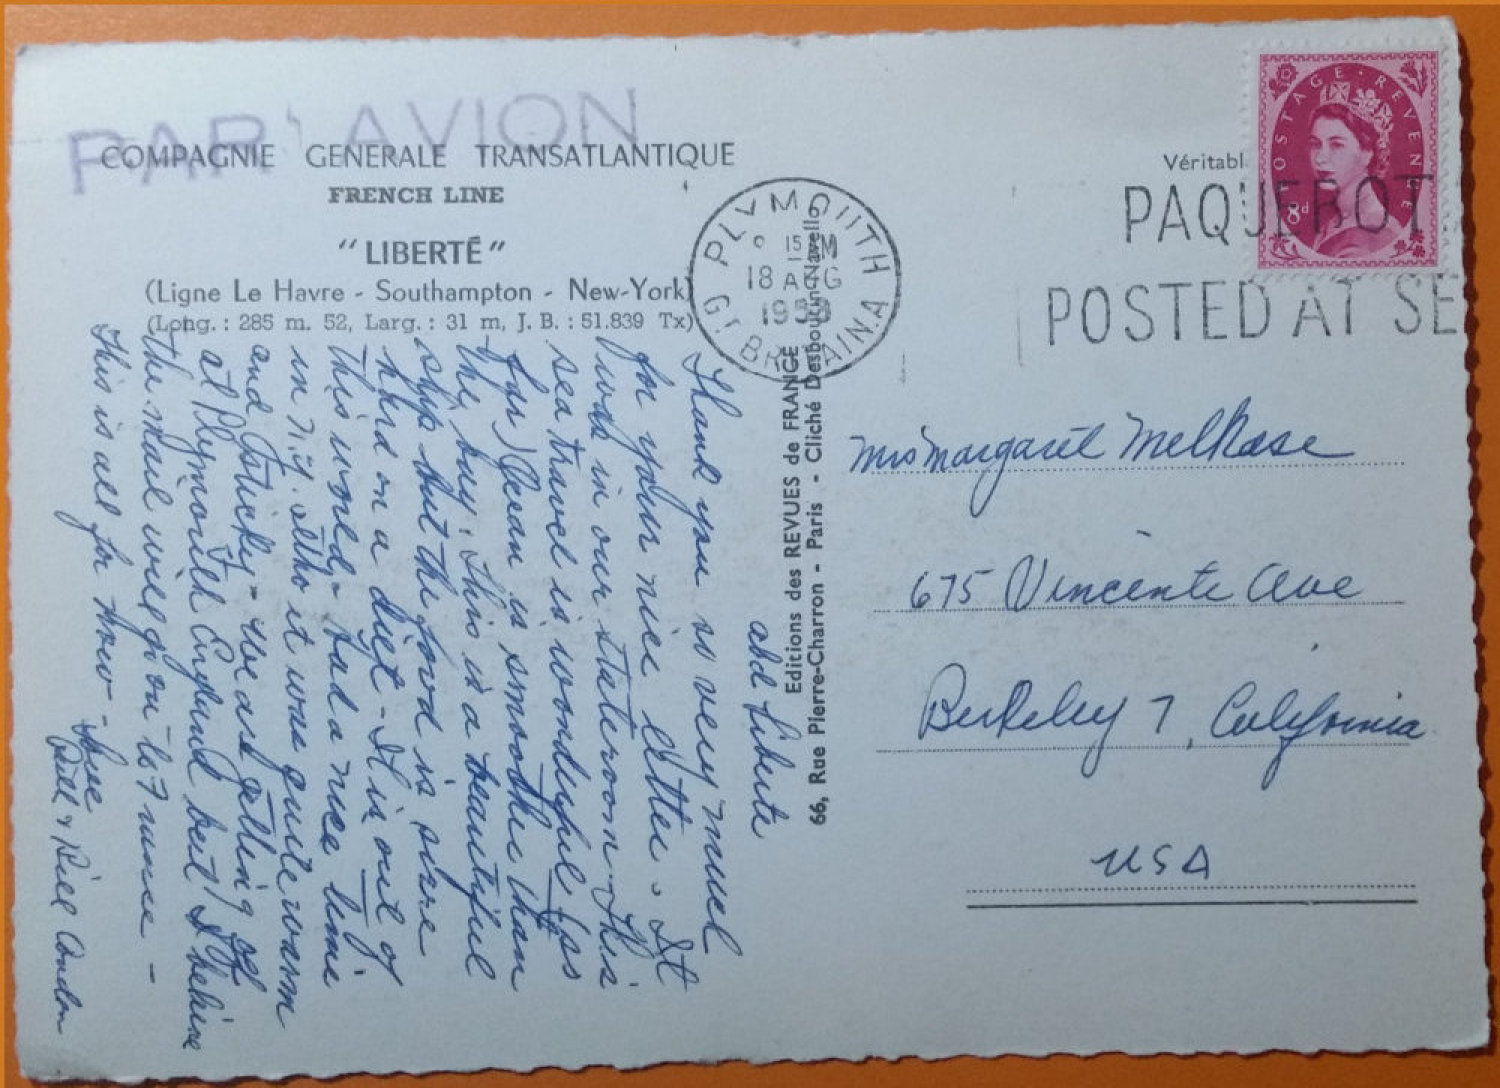 PAR AVION
COMPAGNIE GENERALE TRANSATLANTIQUE
FRENCH LINE
"LIBERTÉ"
(Ligne Le Havre - Southampton - New-York)
(Long. : 285 m. 52, Larg. : 31 m, J. B. : 51.839 Tx)
abd Liberte
Thank you so very much
for your nice letter. It
was in our stateroom - This
sea travel is wonderful (so
far) Ocean is smoother than
the bay. This is a beautiful
ship but the food is sure
hard on a diet - It is out of
this world - had a nice time
in N.Y. altho it was quite warm
and sticky - We are getting off
at Plymouth England but I believe
the mail will go on to France -
This is all for now -
Love
Bill & Condon
Editions des REVUES de FRANCE
66, Rue Pierre-Charron - Paris - Cliché Desboutin-Navello
PLYMOUTH
15 PM
18 AUG
1959
GT BRITAIN.A
Véritabl
POSTAGE REVENUE
8d
PAQUEBOT
POSTED AT SE
Mrs Margaret Melrose
675 Vincente Ave
Berkeley 7, California
USA